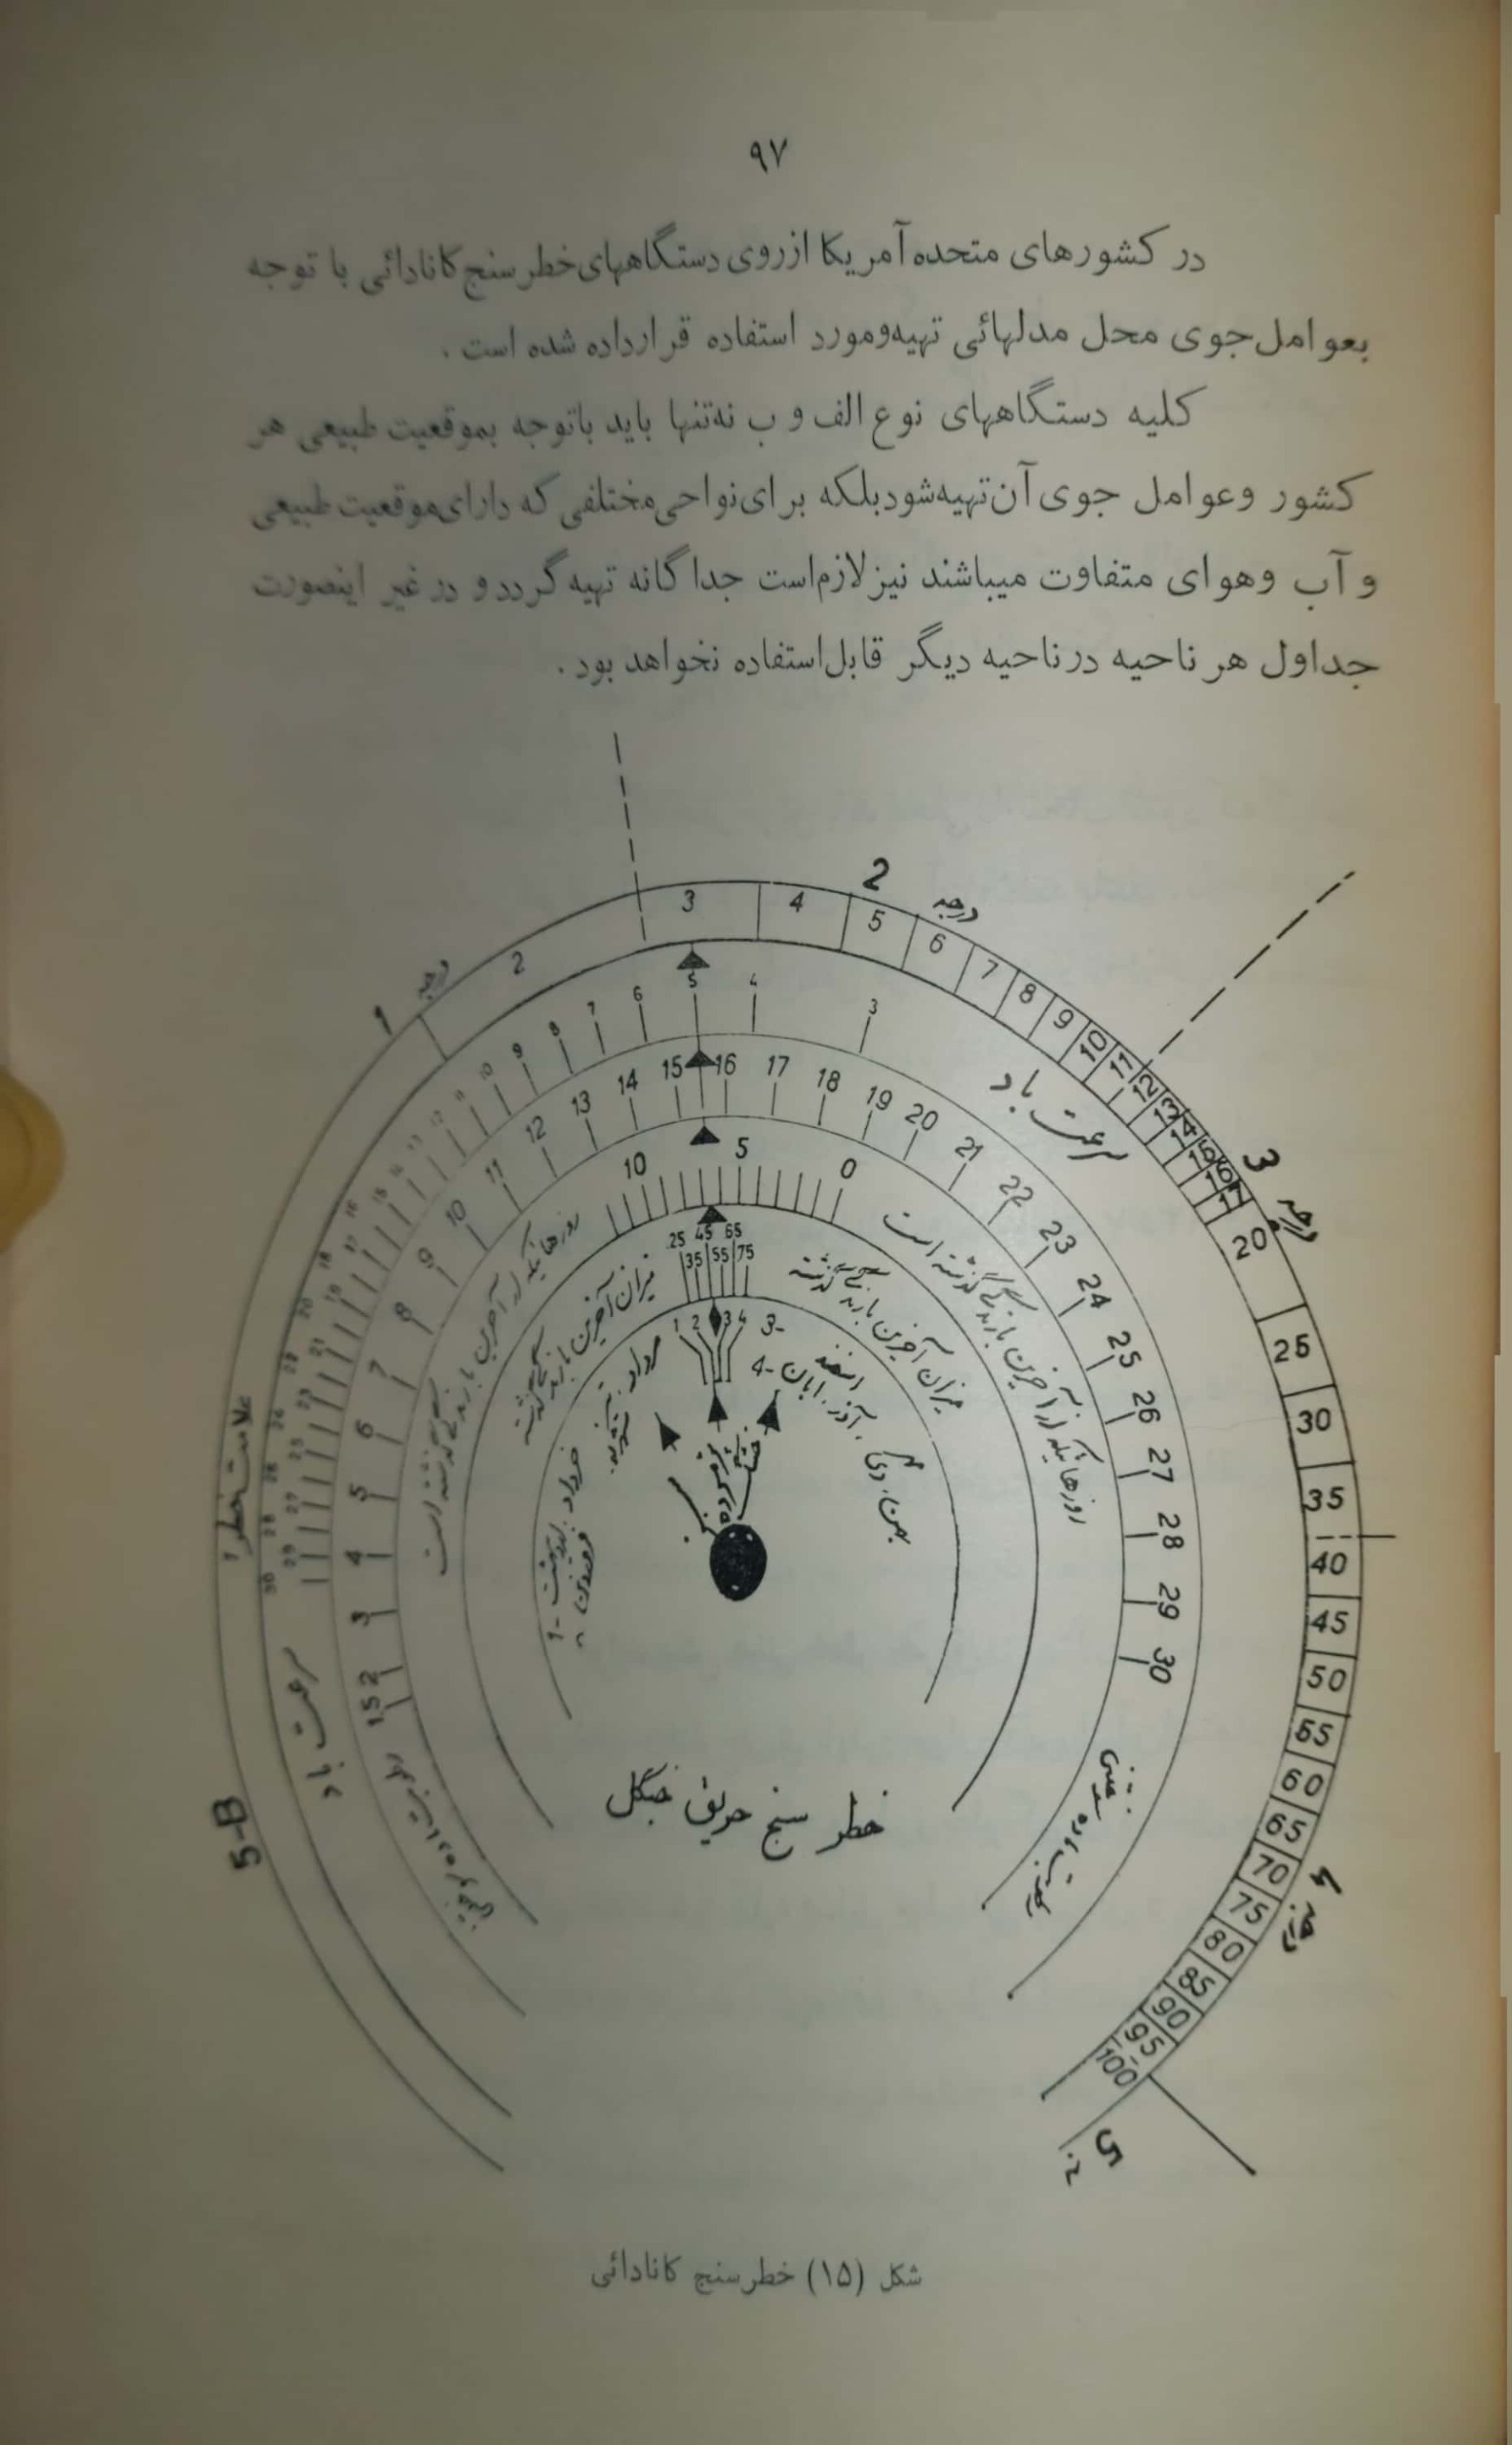 ۹۷
در کشورهای متحده آمریکا ازروی دستگاههای خطر سنج کانادائی با توجه
بعوامل جوی محل مدلهائی تهیه ومورد استفاده قرارداده شده است .
کلیه دستگاههای نوع الف و ب نه تنها باید باتوجه بموقعیت طبیعی هر
کشور وعوامل جوی آن تهیه شود بلکه برای نواحی مختلفی که دارای موقعیت طبیعی
و آب وهوای متفاوت میباشند نیز لازم است جداگانه تهیه گردد و در غیر اینصورت
جداول هر ناحیه در ناحیه دیگر قابل استفاده نخواهد بود .
1 درجه
2 درجه
3 درجه
4 درجه
5
2 3 4 5 6 7 8 9 10 11 12 13 14 15 16 17 20 25 30 35 40 45 50 55 60 65 70 75 80 85 90 95 100
علامت خطر
سرعت باد
3 4 5 6 7 8 9 10
سرعت باد
15 2 3 4 5 6 7 8 9 10 11 12 13 14 15 16 17 18 19 20 21 22 23 24 25 26 27 28 29 30
روزهائیکه از آخرین بارندگی گذشته است
روزهائیکه از آخرین بارندگی گذشته است
10 5 0
میزان آخرین بارندگی گذشته
میزان آخرین بارندگی گذشته
25 35 45 55 65 75
1 2 3 4
خرداد
اسفند
3-
4- آبان ، آذر ، دی ، بهمن
5-B
خطر سنج حریق جنگل
شکل (۱۵) خطرسنج کانادائی